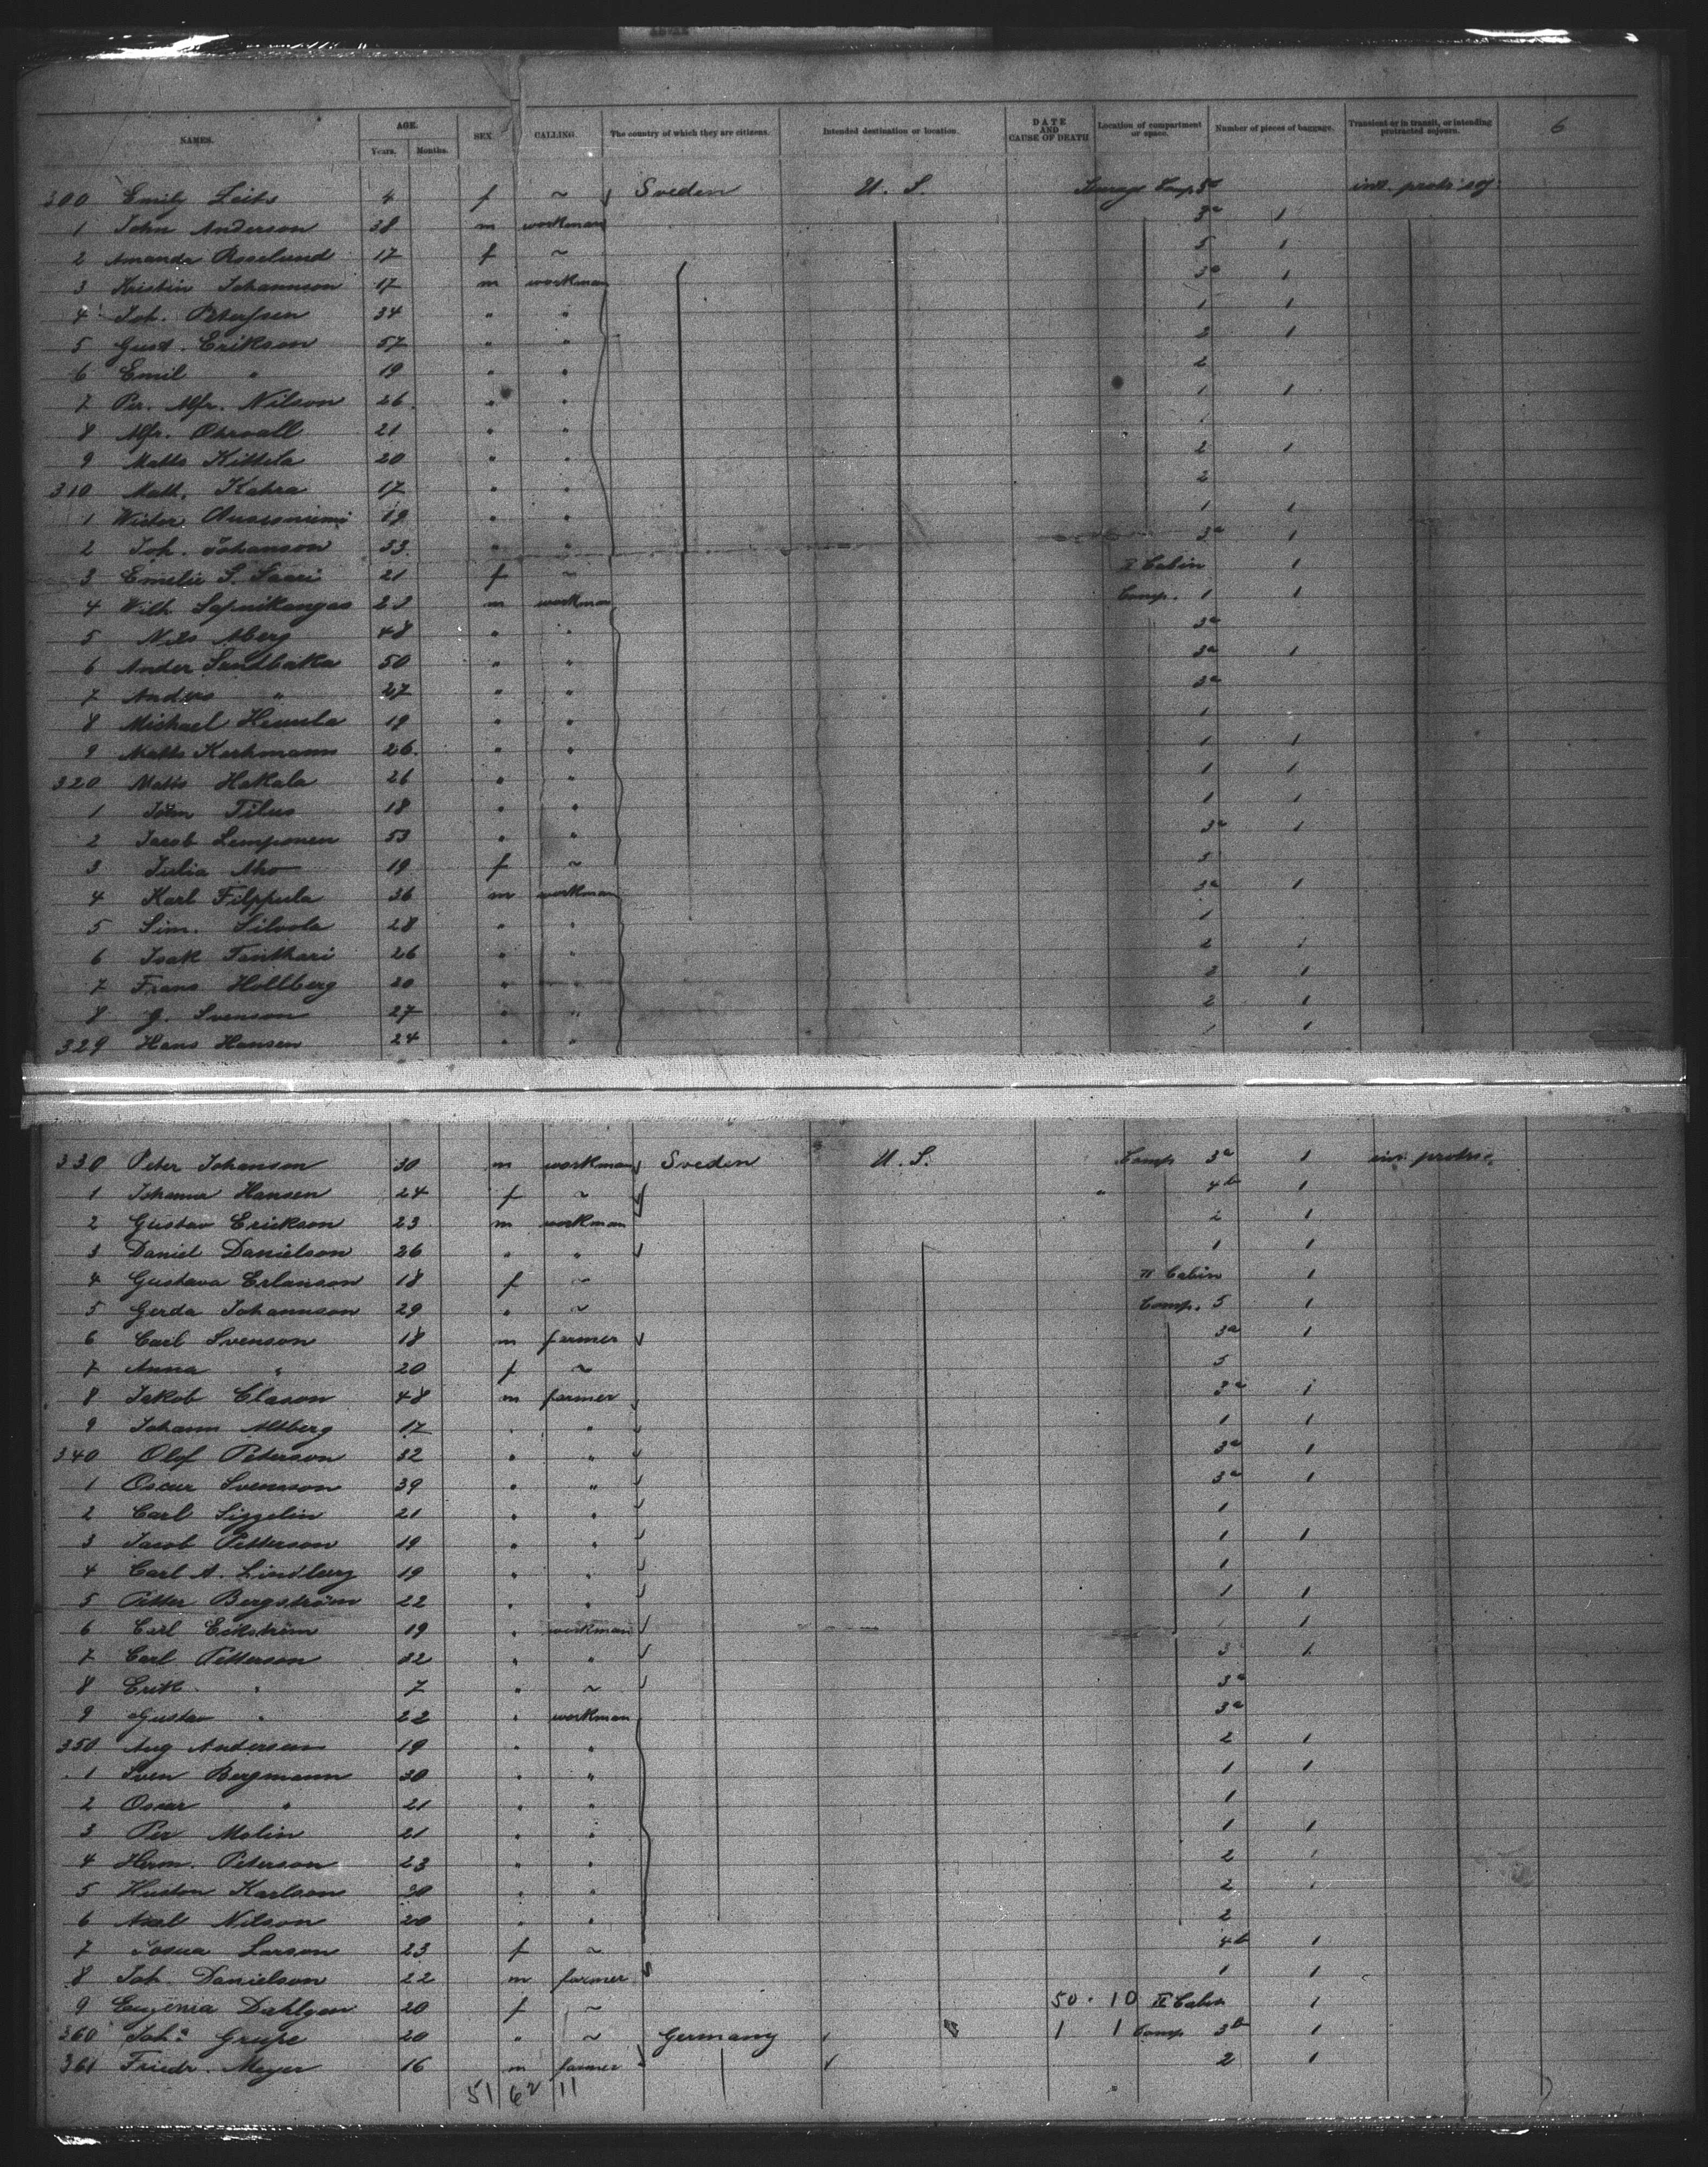 NAMES. AGE. SEX CALLING. The country of which they are citizens. Intended destination or location. DATE AND CAUSE OF DEATH Location of compartment or space. Number of pieces of baggage. Transient or in transit, or intending protracted sojourn. 6
Years. Months.
300 Emily 4 f ~ Sweden U. S. Steerage Comp 5
1 John Anderson 38 m workman 3a 1
2 Amanda Roselund 17 f ~ 5 1
3 Kristin Johannson 17 m workman 3a 1
4 Joh. Peterssen 34 " " 1 1
5 Gust. Erikson 57 " " 2 1
6 Emil " 19 " " 2
7 Per. Alfr. Nilson 26 " " 1 1
8 Alfr. Ohrvall 21 " "
9 Matts Kittila 20 " " 2 1
310 Matt. Kahra 17 " " 2
1 19 " " 1 1
2 Joh. Johanson 33 " " 3a 1
3 Emelie S. Saari 21 f ~ II Cabin 1
4 Wilh. m workman Comp. 1 1
5 Nils Aberg 48 " " 3a
6 Ander Sandbaka 50 " " 3a 1
7 Anders " 27 " " 3a
8 Michael 19 " " 1
9 Matts 26 " " 1 1
320 Matts Hakala 26 " " 1 1
1 18 " " 1 1
2 Jacob Lemponen 53 " " 3a 1
3 Julia Aho 19 f ~ 5
4 Karl Filppula 36 m workman 3a 1
5 Sim. 28 " " 1
6 Isak 26 " " 2 1
7 Frans Hollberg 20 " " 2 1
8 G. Svenson 27 " " 2 1
329 Hans Hansen 24 " " 1 1
330 Peter Johanson 30 m workman Sweden U. S. Comp 3a 1
1 Johanna Hansen 24 f ~ " 4b 1
2 Gustav Erickson 23 m workman 2 1
3 Daniel Danielson 26 " " 1 1
4 Gustava Erlanson 18 f ~ II Cabin 1
5 Gerda Johannson 29 " ~ Comp. 5 1
6 Carl Svenson 18 m farmer 3a 1
7 Anna " 20 f ~ 5
8 Jakob Clason 48 m farmer 3a 1
9 Johann Ahlberg 17 " " 1 1
340 Olof Peterson 32 " " 3a 1
1 Oscar Svensson 39 " " 3a 1
2 Carl 21 " " 1
3 Jacob Petterson 19 " " 1 1
4 Carl A. Lindberg 19 " " 1
5 Petter Bergström 22 " " 1 1
6 Carl Eckström 19 " workman 1
7 Carl Petterson 32 " " 3 1
8 Erik " 7 " ~ 3a
9 Gustav " 22 " workman 3a
350 Aug Andersen 19 " " 2 1
1 Sven Bergmann 30 " " 1 1
2 Oscar " 21 " " 1
3 Per Molin 21 " " 1 1
4 Herm. Peterson 23 " " 2 1
5 Karlson 30 " " 2
6 Axel Nilson 20 " " 2
7 Larson 23 f ~ 4b 1
8 Joh. Danielson 22 m farmer 1 1
9 Eugenia Dahlgen 20 f ~ 50 . 10 II Cabin 1
360 Joh. Grupe 20 " ~ Germany 1 1 Comp 3b 1
361 Friedr. Meyer 16 m farmer 2 1
51 62 11